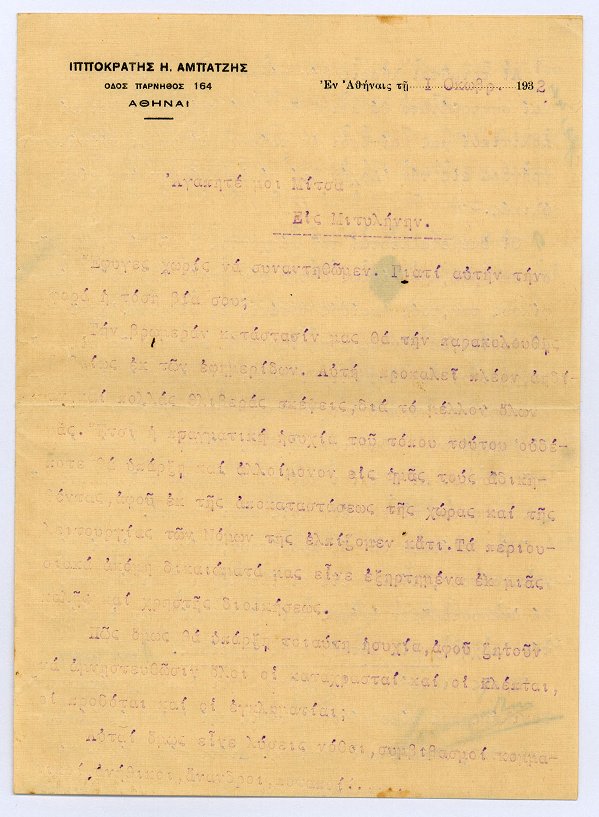 ΙΠΠΟΚΡΑΤΗΣ Η. ΑΜΠΑΤΖΗΣ
ΟΔΟΣ ΠΑΡΝΗΘΟΣ 164
ΑΘΗΝΑΙ
Ἐν Ἀθήναις τῇ 1 Οκωβρ. 1932
Ἀγαπητέ μοι Μίτσο
Εἰς Μιτυλήνην.
Ἔφυγες χωρίς νά συναντηθῶμεν. Γιατί αὐτήν τήν
φορά ἡ τόση βία σου;
Τήν βρωμεράν κατάστασίν μας θά τήν παρακολουθῇς
ἐκ τῶν ἐφημερίδων. Αὐτή προκαλεῖ πλέον,
πολλάς θλιβεράς σκέψεις,διά τό μέλλον ὅλων
μας. Ἦτον ἡ πραγματική ἡσυχία τοῦ τόπου τούτου οὐδέ-
ποτε θά ὑπάρξῃ καί ἀλλοίμονον εἰς ἡμᾶς τούς ἀδική-
θέντας,ἀφοῦ ἐκ τῆς ἀποκαταστάσεως τῆς χώρας καί τῆς
λειτουργίας τῶν Νόμων της ἐλπίζομεν κἄτι.Τά περιου-
σιακά ἀκόμη δικαιώματά μας εἶνε ἐξηρτημένα ἐκ μιᾶς
καλῆς καί χρηστῆς διοικήσεως.
Πῶς ὅμως θά ὑπάρξῃ τοιαύτη ἡσυχία,ἀφοῦ ζητοῦν
νά ὅλοι οἱ καταχρασταί καί,οἱ κλέπται,
οἱ προδόται καί οἱ ἐγκληματίαι;
Αὐταί ὅμως εἶνε λύσεις νόθοι,συμβιβασμοί κομμα-
ἀνήθικοι,ἄνανδροι,